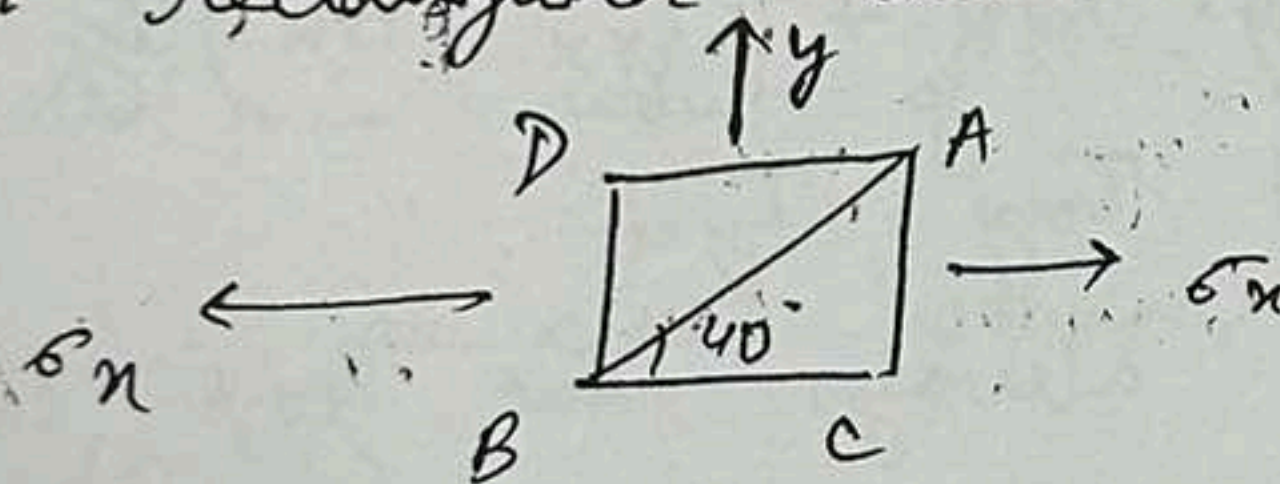 y
D A
σx σx
40°
B C